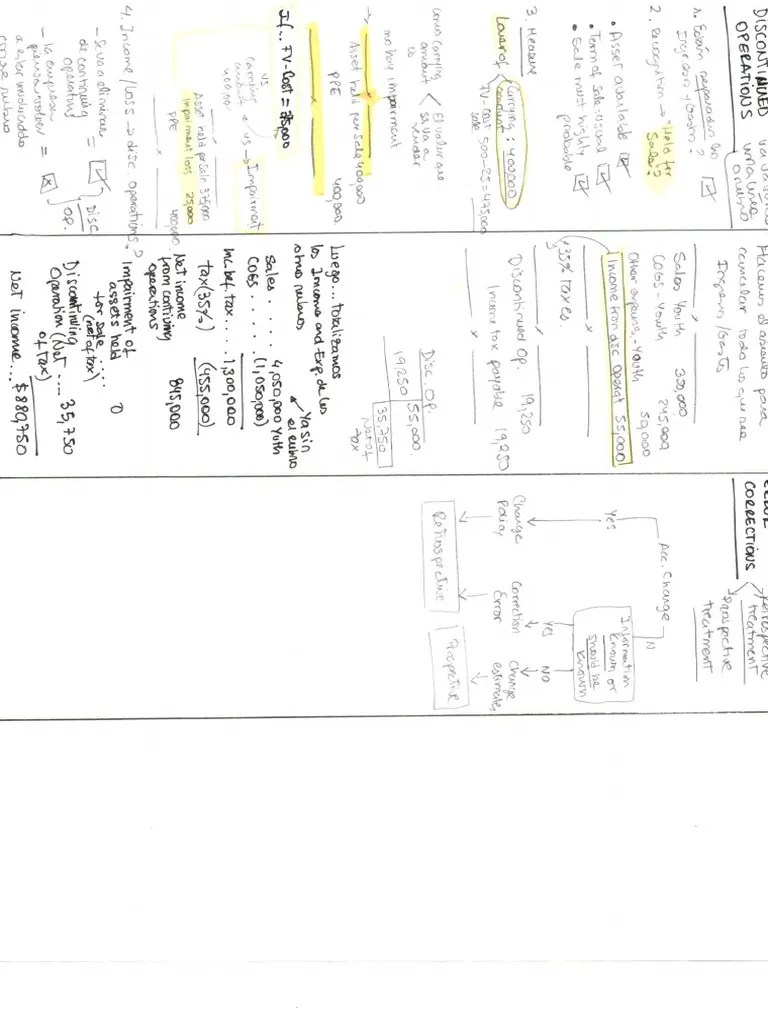 DISCONTINUED
OPERATIONS
va a valorar
una línea
o rubro
1. Están separados los
Ingresos y Gastos?
2. Recognition → "Held for
Sale?
• Asset available
• Term of sale usual
• Sale must highly
probable
3. Measure
Lower of
Carrying: 400,000
amount
FV-cost 500-25 = 475,000
sale
como carrying
amount
is
< El valor que
se va a
vender
no hay impairment
→
Asset held for Sale 400,000
PPE 400,000
If... FV-Cost = 375,000
vs
carrying
amount
400,000
vs → Impairment
Asset held for sale 375,000
Impairment loss 25,000
PPE 400,000
4. Income/Loss → disc. operations?
- Se va a eliminar
de continuing
operating =
- la empresa
piensa volver
a estar involucrado
en ese rubro =
DISC
OP.
Hacemos el asiento para
cancelar todos los
Ingresos/Gastos
Sales Youth 350,000
COGS-Youth 245,000
Other expenses-Youth 50,000
Income from disc operat 55,000
x 35% taxes
Discontinued Op. 19,250
Income tax payable 19,250
Disc. OP.
19,250 55,000
35,750
Net of
tax
Luego... totalizamos
los Income and Exp de los
otros rubros
Ya sin
el rubro
Youth
Sales..... 4,050,000
COGS..... (1,050,000)
Inc bef. tax.... 1,300,000
tax (35%) (455,000)
Net income 845,000
from continuing
operations
Impairment of
assets held
for sale ..... 0
(net of tax)
Discontinuing
Operation (Net ... 35,750
of tax)
Net income... $880,750
CORRECTIONS
Retrospective
treatment
Prospective
treatment
Acc. Change
Yes
N
Information
known or
should be
known
Yes
NO
Change
Policy
Correction
Error
Change
estimates
Retrospective
Prospective